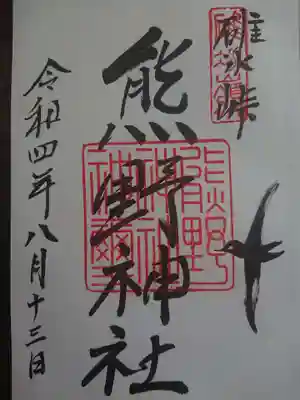 碓氷峠
熊野神社
令和四年八月十三日
熊野
神社
神璽